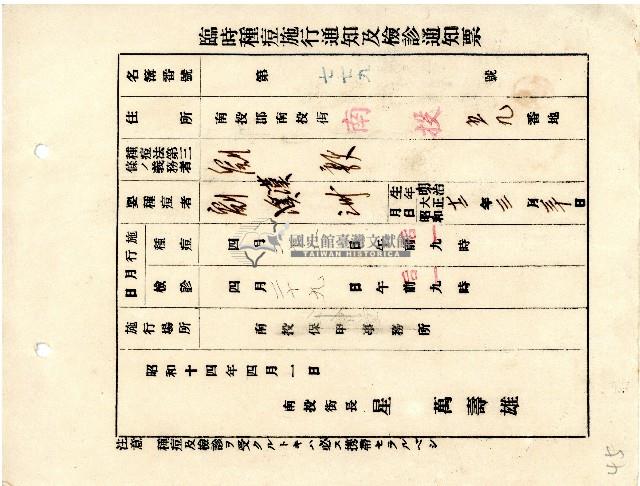 臨時種痘施行通知及檢診通知票
名簿番號 第 七七九 號
住所 南投郡南投街 南投 番地
種痘法第三條ノ義務者 劉
要種痘者 劉漢洲 生年月日 明治大正昭和 年 月 日
施行月日 種痘 四月 日午前後一九時
檢診 四月二十九日午前後一九時
施行場所 南投保甲事務所
昭和十四年四月一日
南投街長 星 萬壽雄
注意 種痘及檢診ヲ受クルトキハ必ス携帶セラルベシ
國史館臺灣文獻館
TAIWAN HISTORICA
45